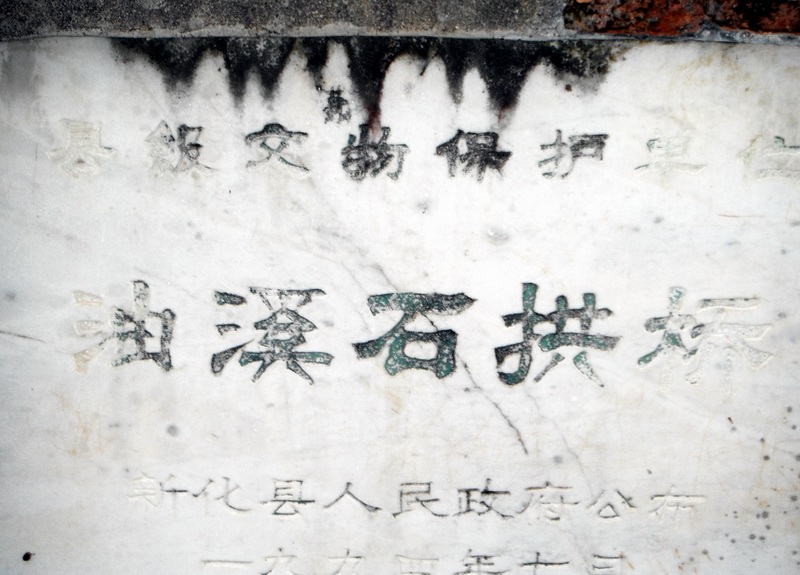 县级文物保护单位
油溪石拱桥
新化县人民政府公布
一九九四年七月